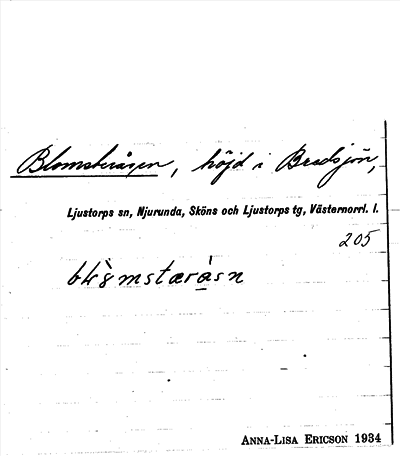 Blomsteråsen, höjd i Bredsjön,
Ljustorps sn, Njurunda, Sköns och Ljustorps tg, Västernorrl. l.
205
ANNA-LISA ERICSON 1934